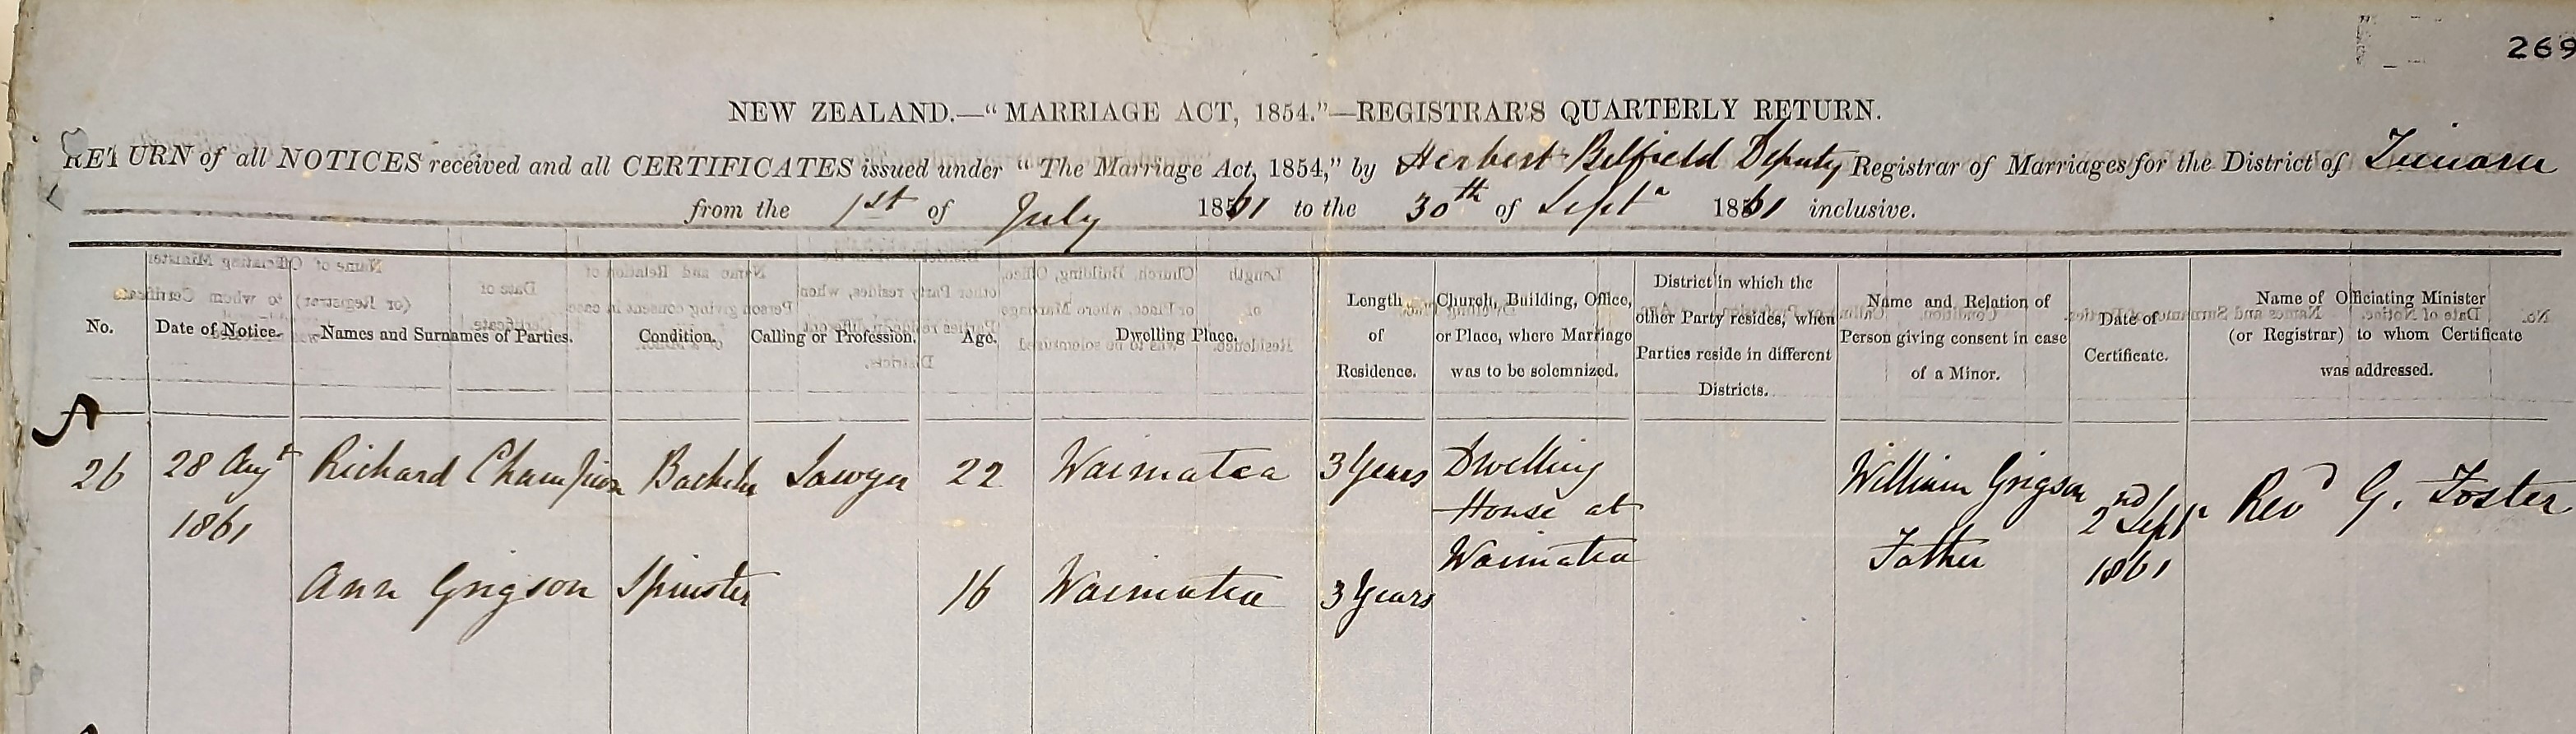 269
NEW ZEALAND.—“MARRIAGE ACT, 1854.”—REGISTRAR'S QUARTERLY RETURN.
RETURN of all NOTICES received and all CERTIFICATES issued under “The Marriage Act, 1854,” by Herbert Belfield Deputy Registrar of Marriages for the District of Timaru
from the 1st of July 1861 to the 30th of Septr 1861 inclusive.
No.
Date of Notice.
Names and Surnames of Parties.
Condition.
Calling or Profession.
Age.
Dwelling Place.
Length
of
Residence.
Church, Building, Office,
or Place, where Marriage
was to be solemnized.
District in which the
other Party resides, when
Parties reside in different
Districts.
Name and Relation of
Person giving consent in case
of a Minor.
Date of
Certificate.
Name of Officiating Minister
(or Registrar) to whom Certificate
was addressed.
26
28 Augt
1861
Richard Champion
Bachelor
Sawyer
22
Waimatea
3 Years
Dwelling
House at
Waimatea
William Grigson
Father
2nd Septr
1861
Revd G. Foster
Ann Grigson
Spinster
16
Waimatea
3 Years